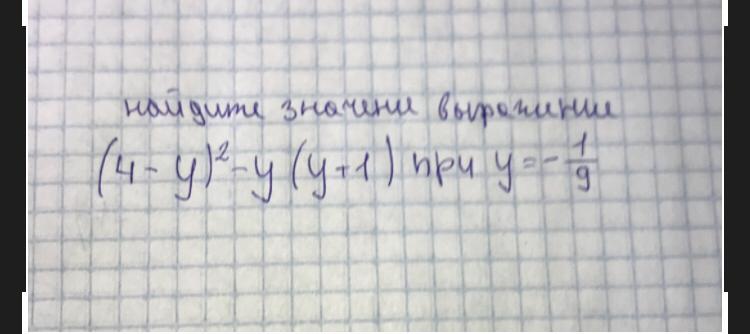 найдите значени выражение
(4-y)²-y(y+1) при y=-1/9